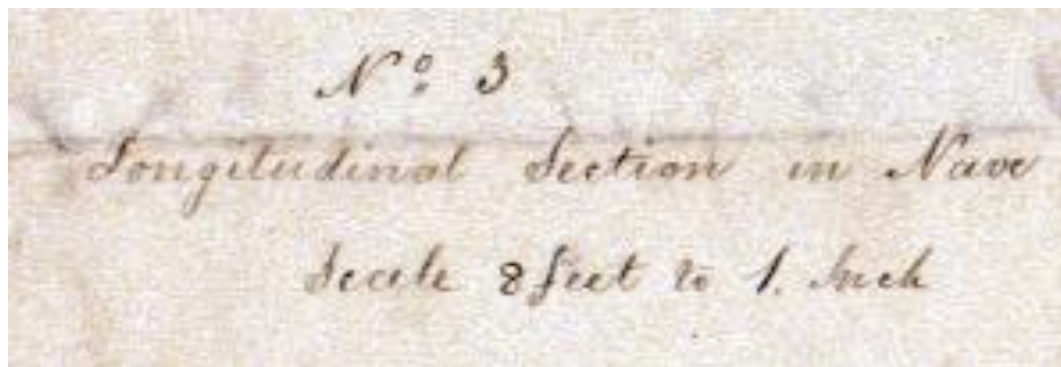 Nº 3
Longitudinal Section in Nave
Scale 8 feet to 1. Inch